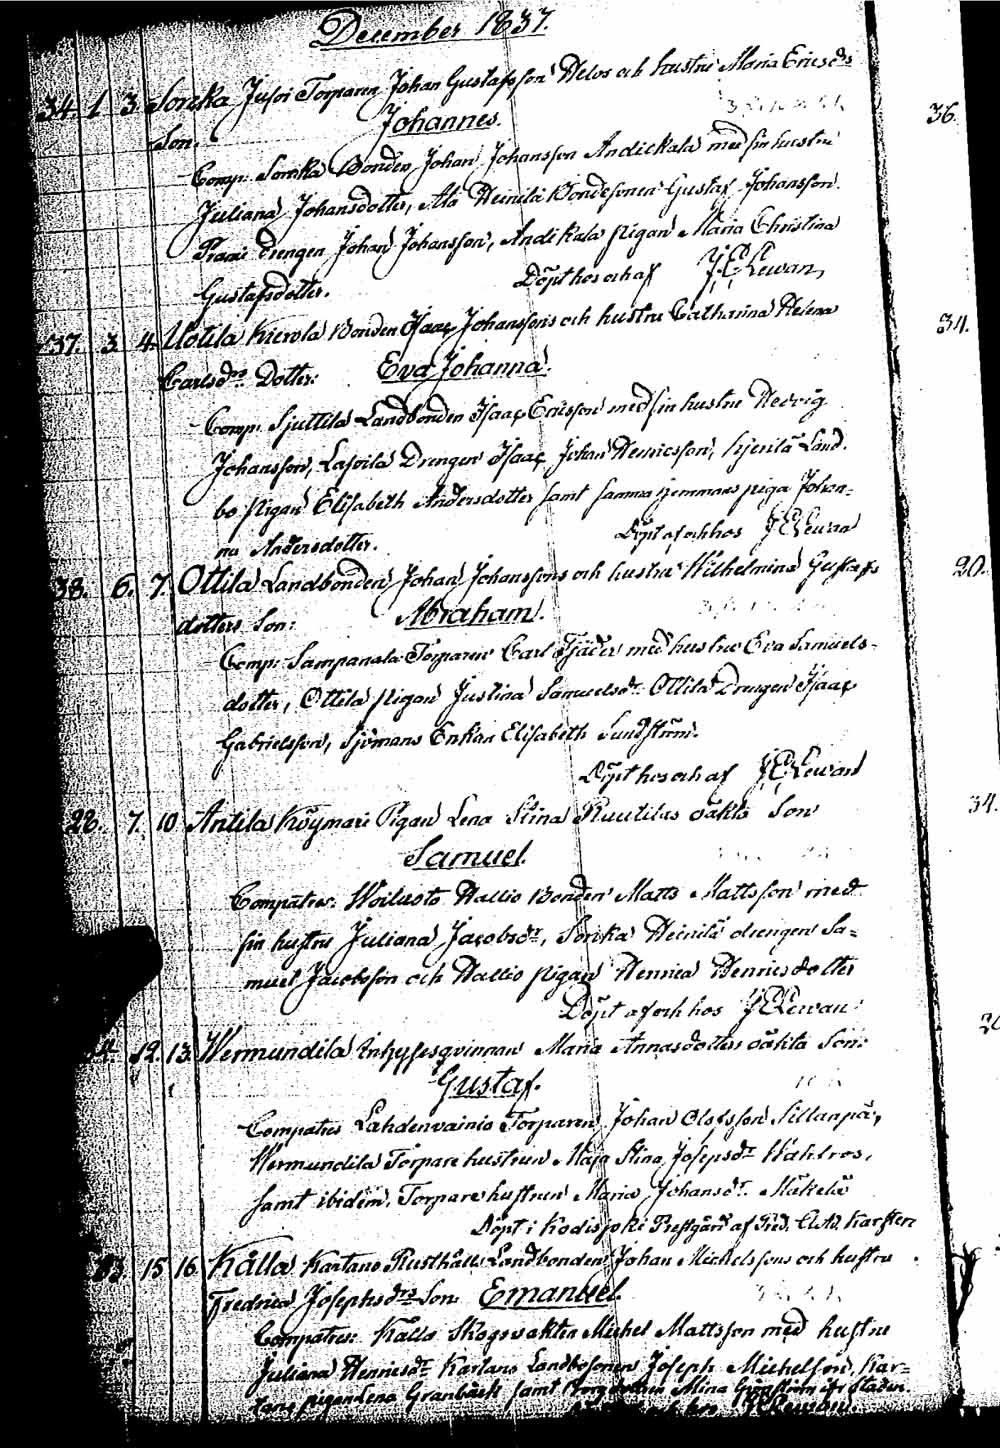 December 1837.
34. 1 3 Sorcka Jusoi Torparen Johan Gustafsson Helos och hustru Maria Ericsdrs
Son. Johannes.
36.
Comp: Sorcka Bonden Johan Johansson Andickala med sin hustru
Juliana Johansdotter, Ala Heinilä Bondesonen Gustaf Johansson
drengen Johan Johansson, Andikala pigan Maria Christina
Gustafsdotter. Döpt hos och af J. E. Lewan,
37. 3. 4. Uotila Bonden Isaac Johanssons och hustru Catharina Helena
34.
Carlsdrs Dotter: Eva Johanna.
Comp: Sjuttila Landbonden Isaac Ericsson med sin hustru Hedvig
Johansson, Lasoila Drengen Isaac Johan Henricsson, Land-
bo pigan Elisabeth Andersdotter samt samma hemmans piga Johan-
na Andersdotter. Döpt af och hos J E Lewan
38. 6. 7. Ottila Landbonden Johan Johanssons och hustru Wilhelmina Gustafs
20.
dotters Son: Abraham.
Comp: Sampanala Torparen Carl Tjäder med hustru Eva Samuels-
dotter, Ottila pigan Justina Samuelsdr Ottila Drengen Isaac
Gabrielsson, Sjömans Enkan Elisabeth Sundström.
Döpt hos och af J E Lewan
22. 7. 10 Antila Köymari Pigan Lena Stina Ruutilas oäkta Son
34.
Samuel.
Compatres: Woiluoto Wallio Bonden Matts Mattsson med
sin hustru Juliana Jacobsdr, Sorcka Heinilä drengen Sa-
muel Jacobsson och Wallio pigan Henrica Henricsdotter
Döpt af och hos J E Lewan
12. 13. Wermundila Inhysesqvinnan Maria Annasdotters oäkta Son:
Gustaf.
Compatres Lahdenvainio Torparen Johan Olofsson Sillanpä,
Wermundila Torpare hustrun Maja Stina Josephsdr Wahlros,
samt ibidem, Torpare hustrun Maria Johansdr. Mäkelä
Döpt i Kodisjoki Prestgård af Karsten
23. 15 16. Källa Kartano Rusthålls Landbonden Johan Michelssons och hustru
Fredrica Josephsdrs Son: Emanuel.
Compatres: Källa Skogsvakten Michel Mattsson med hustru
Juliana Henricsdr Kartano Landbosonen Joseph Michelsson, Kar-
tano pigan Lena Granbäck samt Mina
Lewan.